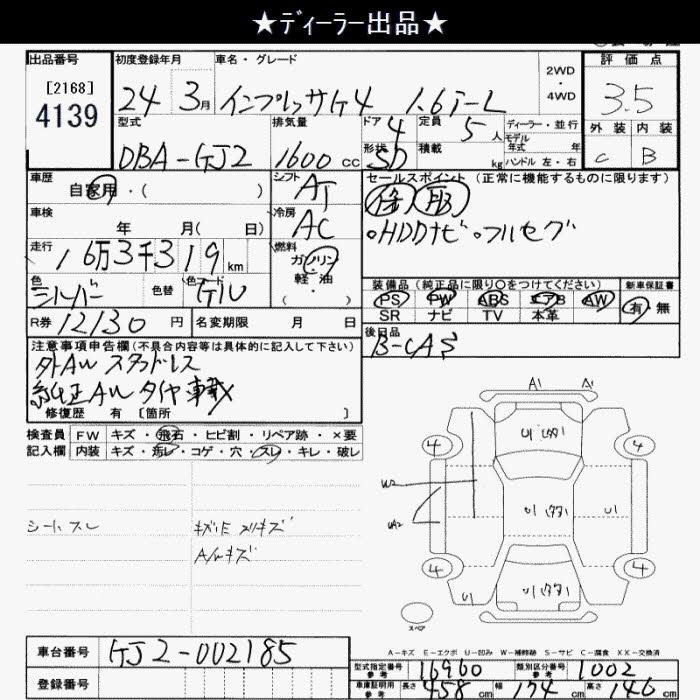 ★ディーラー出品★
出品番号
[2168]
4139
初度登録年月
24 3月
車名・グレード
インプレッサG4 1.6i-L
2WD
・
4WD
評価点
3.5
外装 内装
C B
型式
DBA-GJ2
排気量
1600 cc
ドア 4
形状 SD
定員 5人
積載 kg
ディーラー・並行
モデル
年式 年
ハンドル 左・右
車歴
自家用・( )
シフト AT
車検
年 月( 日)
冷房 AC
走行
16万3千319km
燃料
ガソリン
軽油
・
( )
色
シルバー
色替
色コード
G1U
R券 12130円
名変期限 月 日
セールスポイント(正常に機能するものに限ります)
・HDDナビ ・フルセグ
装備品(純正品に限り○をつけてください)
PS PW ABS エアB AW
SR ナビ TV 本革
新車保証書
有・無
後日品
B-CAS
注意事項申告欄(不具合内容等は具体的に記入して下さい)
外AW スタッドレス
純正AW タイヤ車載
修復歴 有 [箇所 ]
検査員
記入欄
FW キズ・飛石・ヒビ割・リペア跡・×要
内装 キズ・汚レ・コゲ・穴・スレ・キレ・破レ
シートスレ
A/Wキズ
A1 A1
4 4
U1
U2
UA2
U1
U1
U1
4 4
スペア
A-キズ E-エクボ U-凹み W-補修跡 S-サビ C-腐食 XX-交換済
車台番号
GJ2-002185
登録番号
型式指定番号
参考
16960
類別区分番号
参考
1002
車庫証明用
参考
長さ 458cm 幅 174cm 高さ 146cm